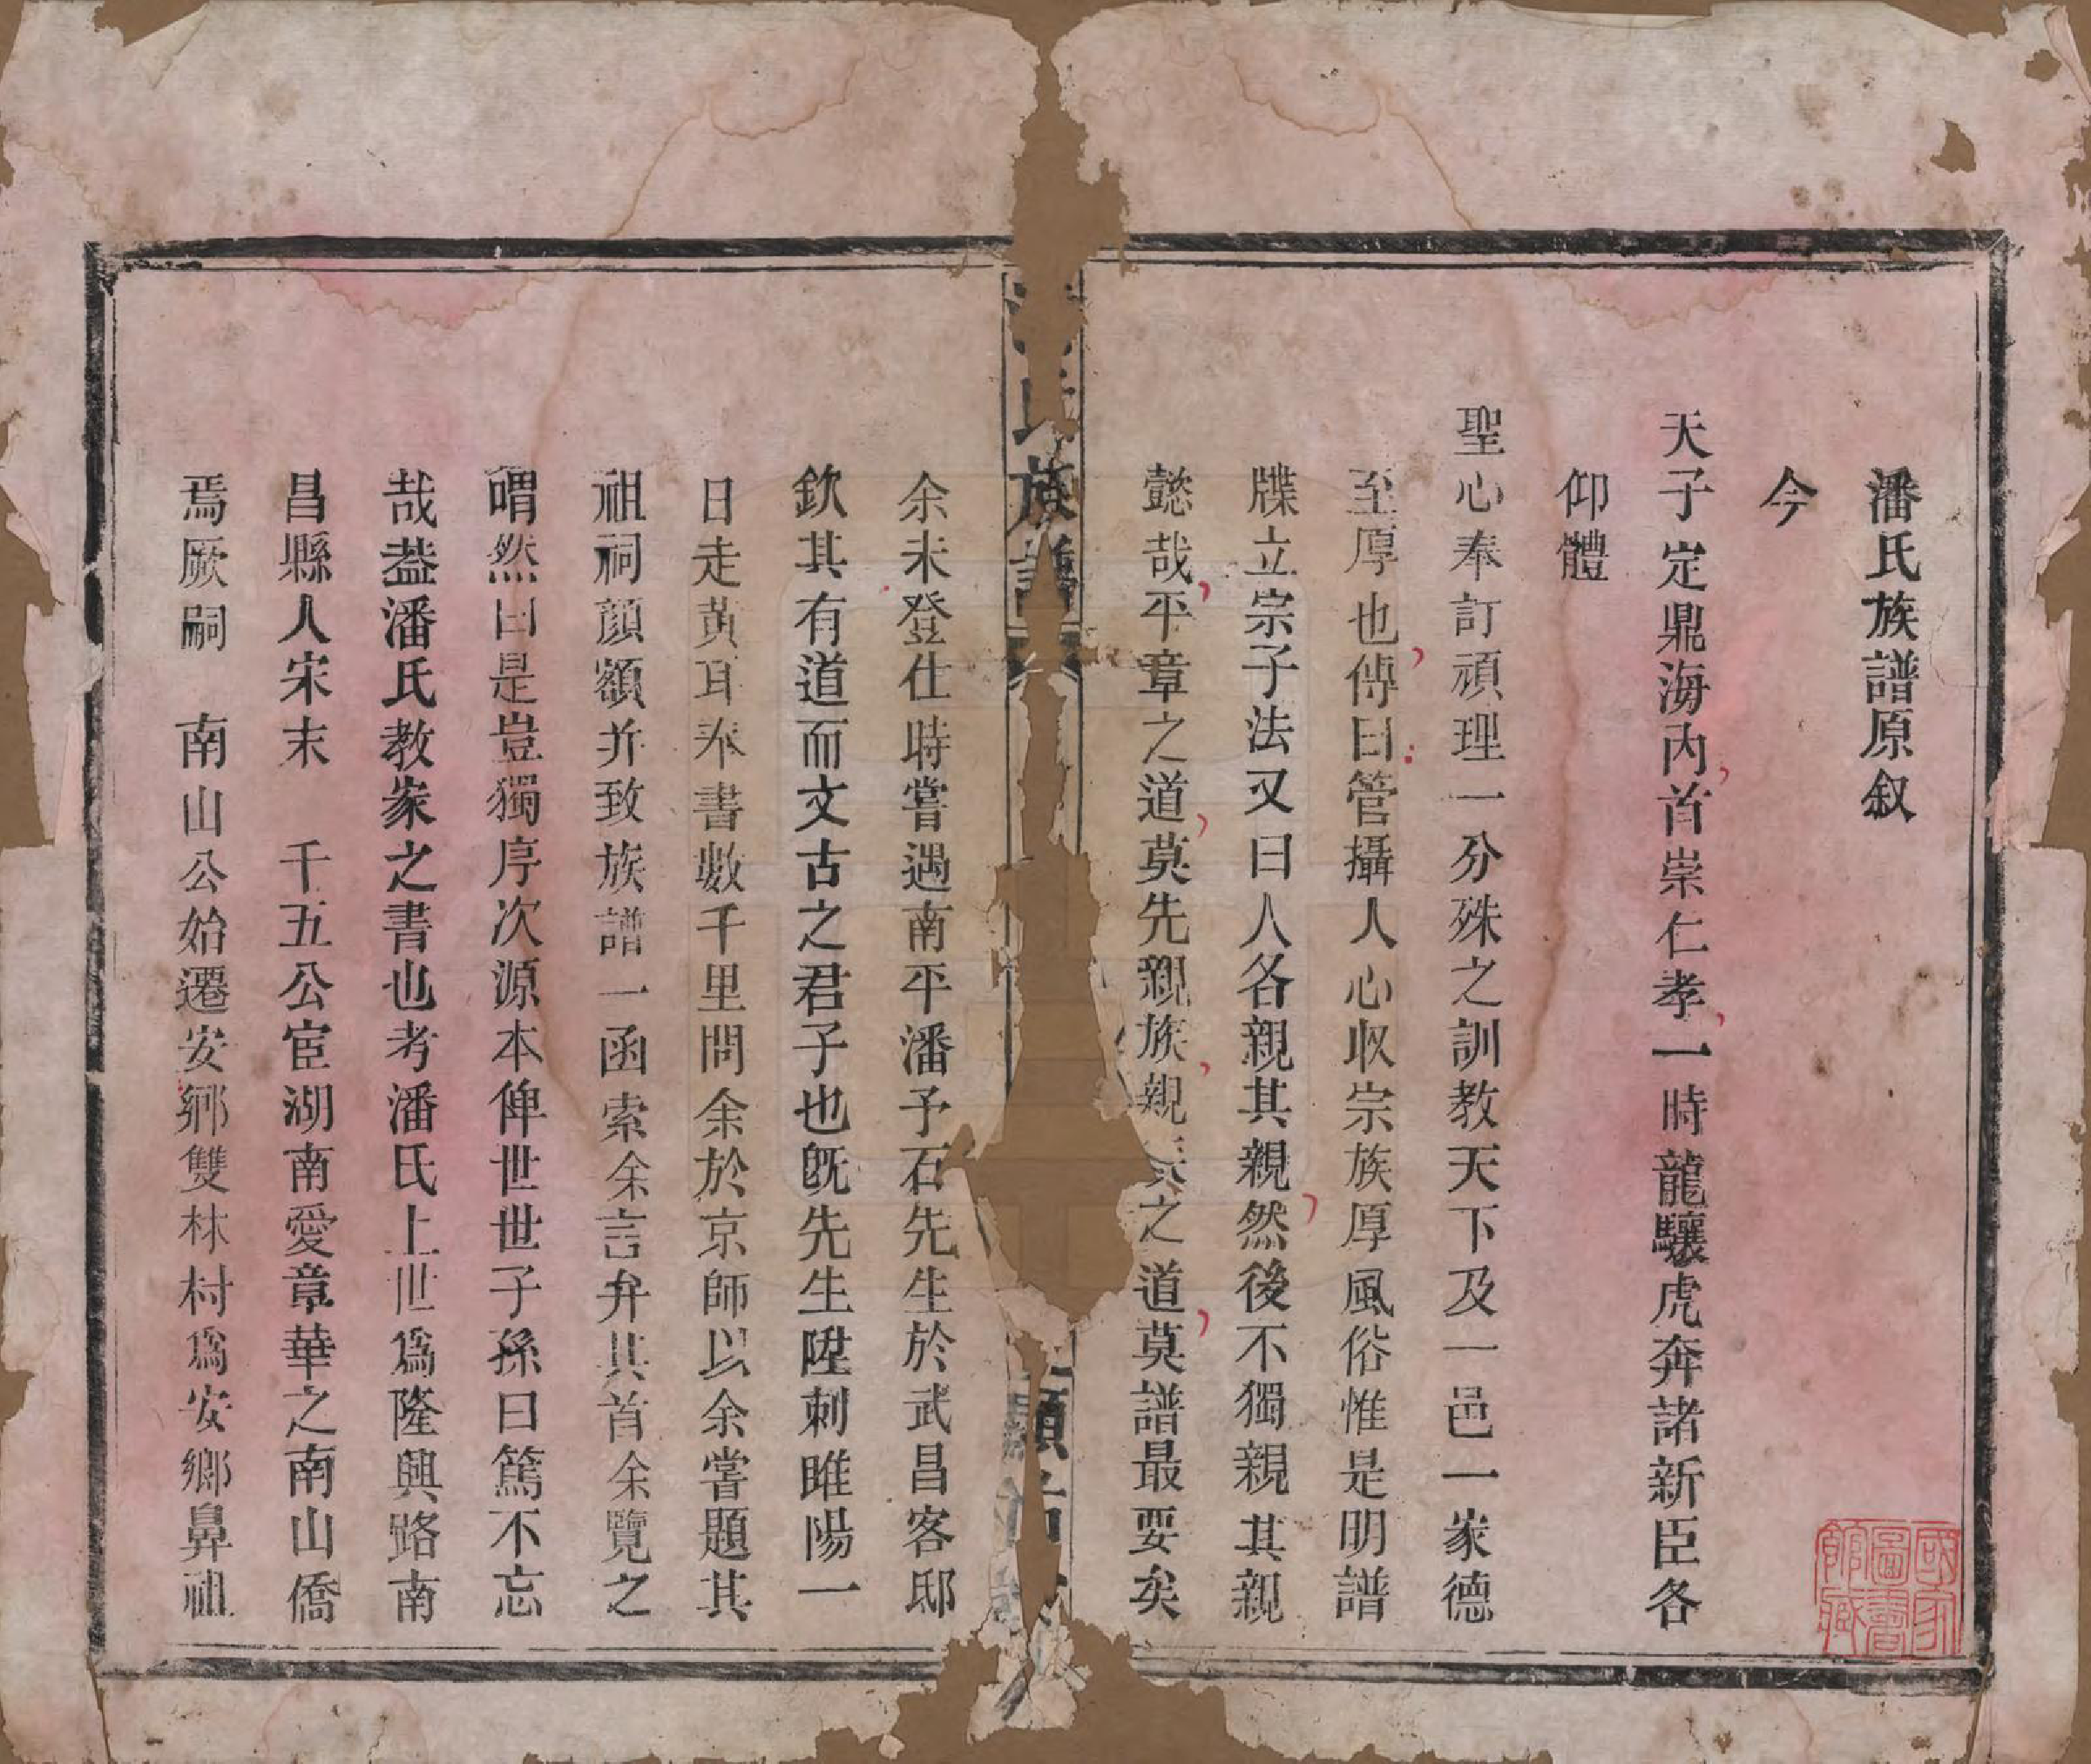 潘氏族譜原叙
今
天子定鼎海內首崇仁孝一時龍驤虎奔諸新臣各
仰體
聖心奉訂頑理一分殊之訓教天下及一邑一家德
至厚也傳曰管攝人心収宗族厚風俗惟是明譜
牒立宗子法又曰人各親其親然後不獨親其親
懿哉平章之道莫先親族親族之道莫譜最要矣
氏族譜
余未登仕時嘗遇南平潘予石先生於武昌客邸
欽其有道而文古之君子也旣先生陞刺睢陽一
日走黃耳奉書數千里問余於京師以余嘗題其
祖祠顏額并致族譜一函索余言弁其首余覽之
喟然曰是豈獨序次源本俾世世子孫曰篤不忘
哉葢潘氏教家之書也考潘氏上世爲隆興路南
昌縣人宋末 千五公宦湖南愛章華之南山僑
焉厥嗣 南山公始遷安鄉雙林村爲安鄉鼻祖
國家圖書館藏